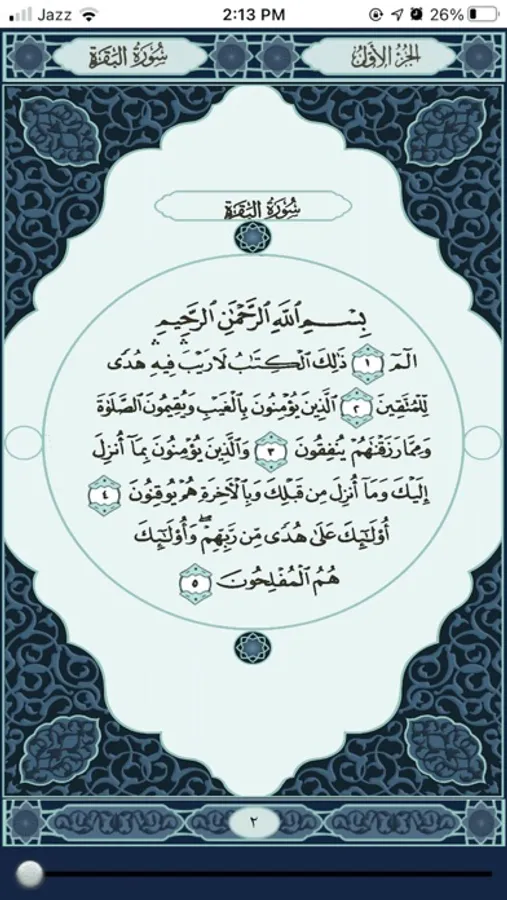 Jazz 2:13 PM 26%
سُورَةُ البَقَرَةِ الجُزْءُ الأَوَّلُ
سُورَةُ البَقَرَةِ
بِسْمِ ٱللَّهِ ٱلرَّحْمَٰنِ ٱلرَّحِيمِ
الٓمٓ ١ ذَٰلِكَ ٱلْكِتَٰبُ لَا رَيْبَ ۛ فِيهِ ۛ هُدًى
لِّلْمُتَّقِينَ ٢ ٱلَّذِينَ يُؤْمِنُونَ بِٱلْغَيْبِ وَيُقِيمُونَ ٱلصَّلَوٰةَ
وَمِمَّا رَزَقْنَٰهُمْ يُنفِقُونَ ٣ وَٱلَّذِينَ يُؤْمِنُونَ بِمَآ أُنزِلَ
إِلَيْكَ وَمَآ أُنزِلَ مِن قَبْلِكَ وَبِٱلْأَخِرَةِ هُمْ يُوقِنُونَ ٤
أُو۟لَٰٓئِكَ عَلَىٰ هُدًى مِّن رَّبِّهِمْ ۖ وَأُو۟لَٰٓئِكَ
هُمُ ٱلْمُفْلِحُونَ ٥
٢